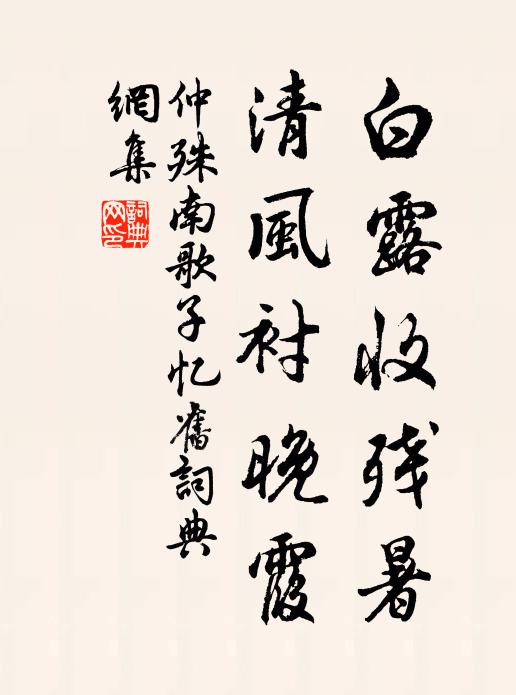 白露收残暑
清風衬晚霞
仲殊南歌子忆舊詞典
網集
詞典
网印